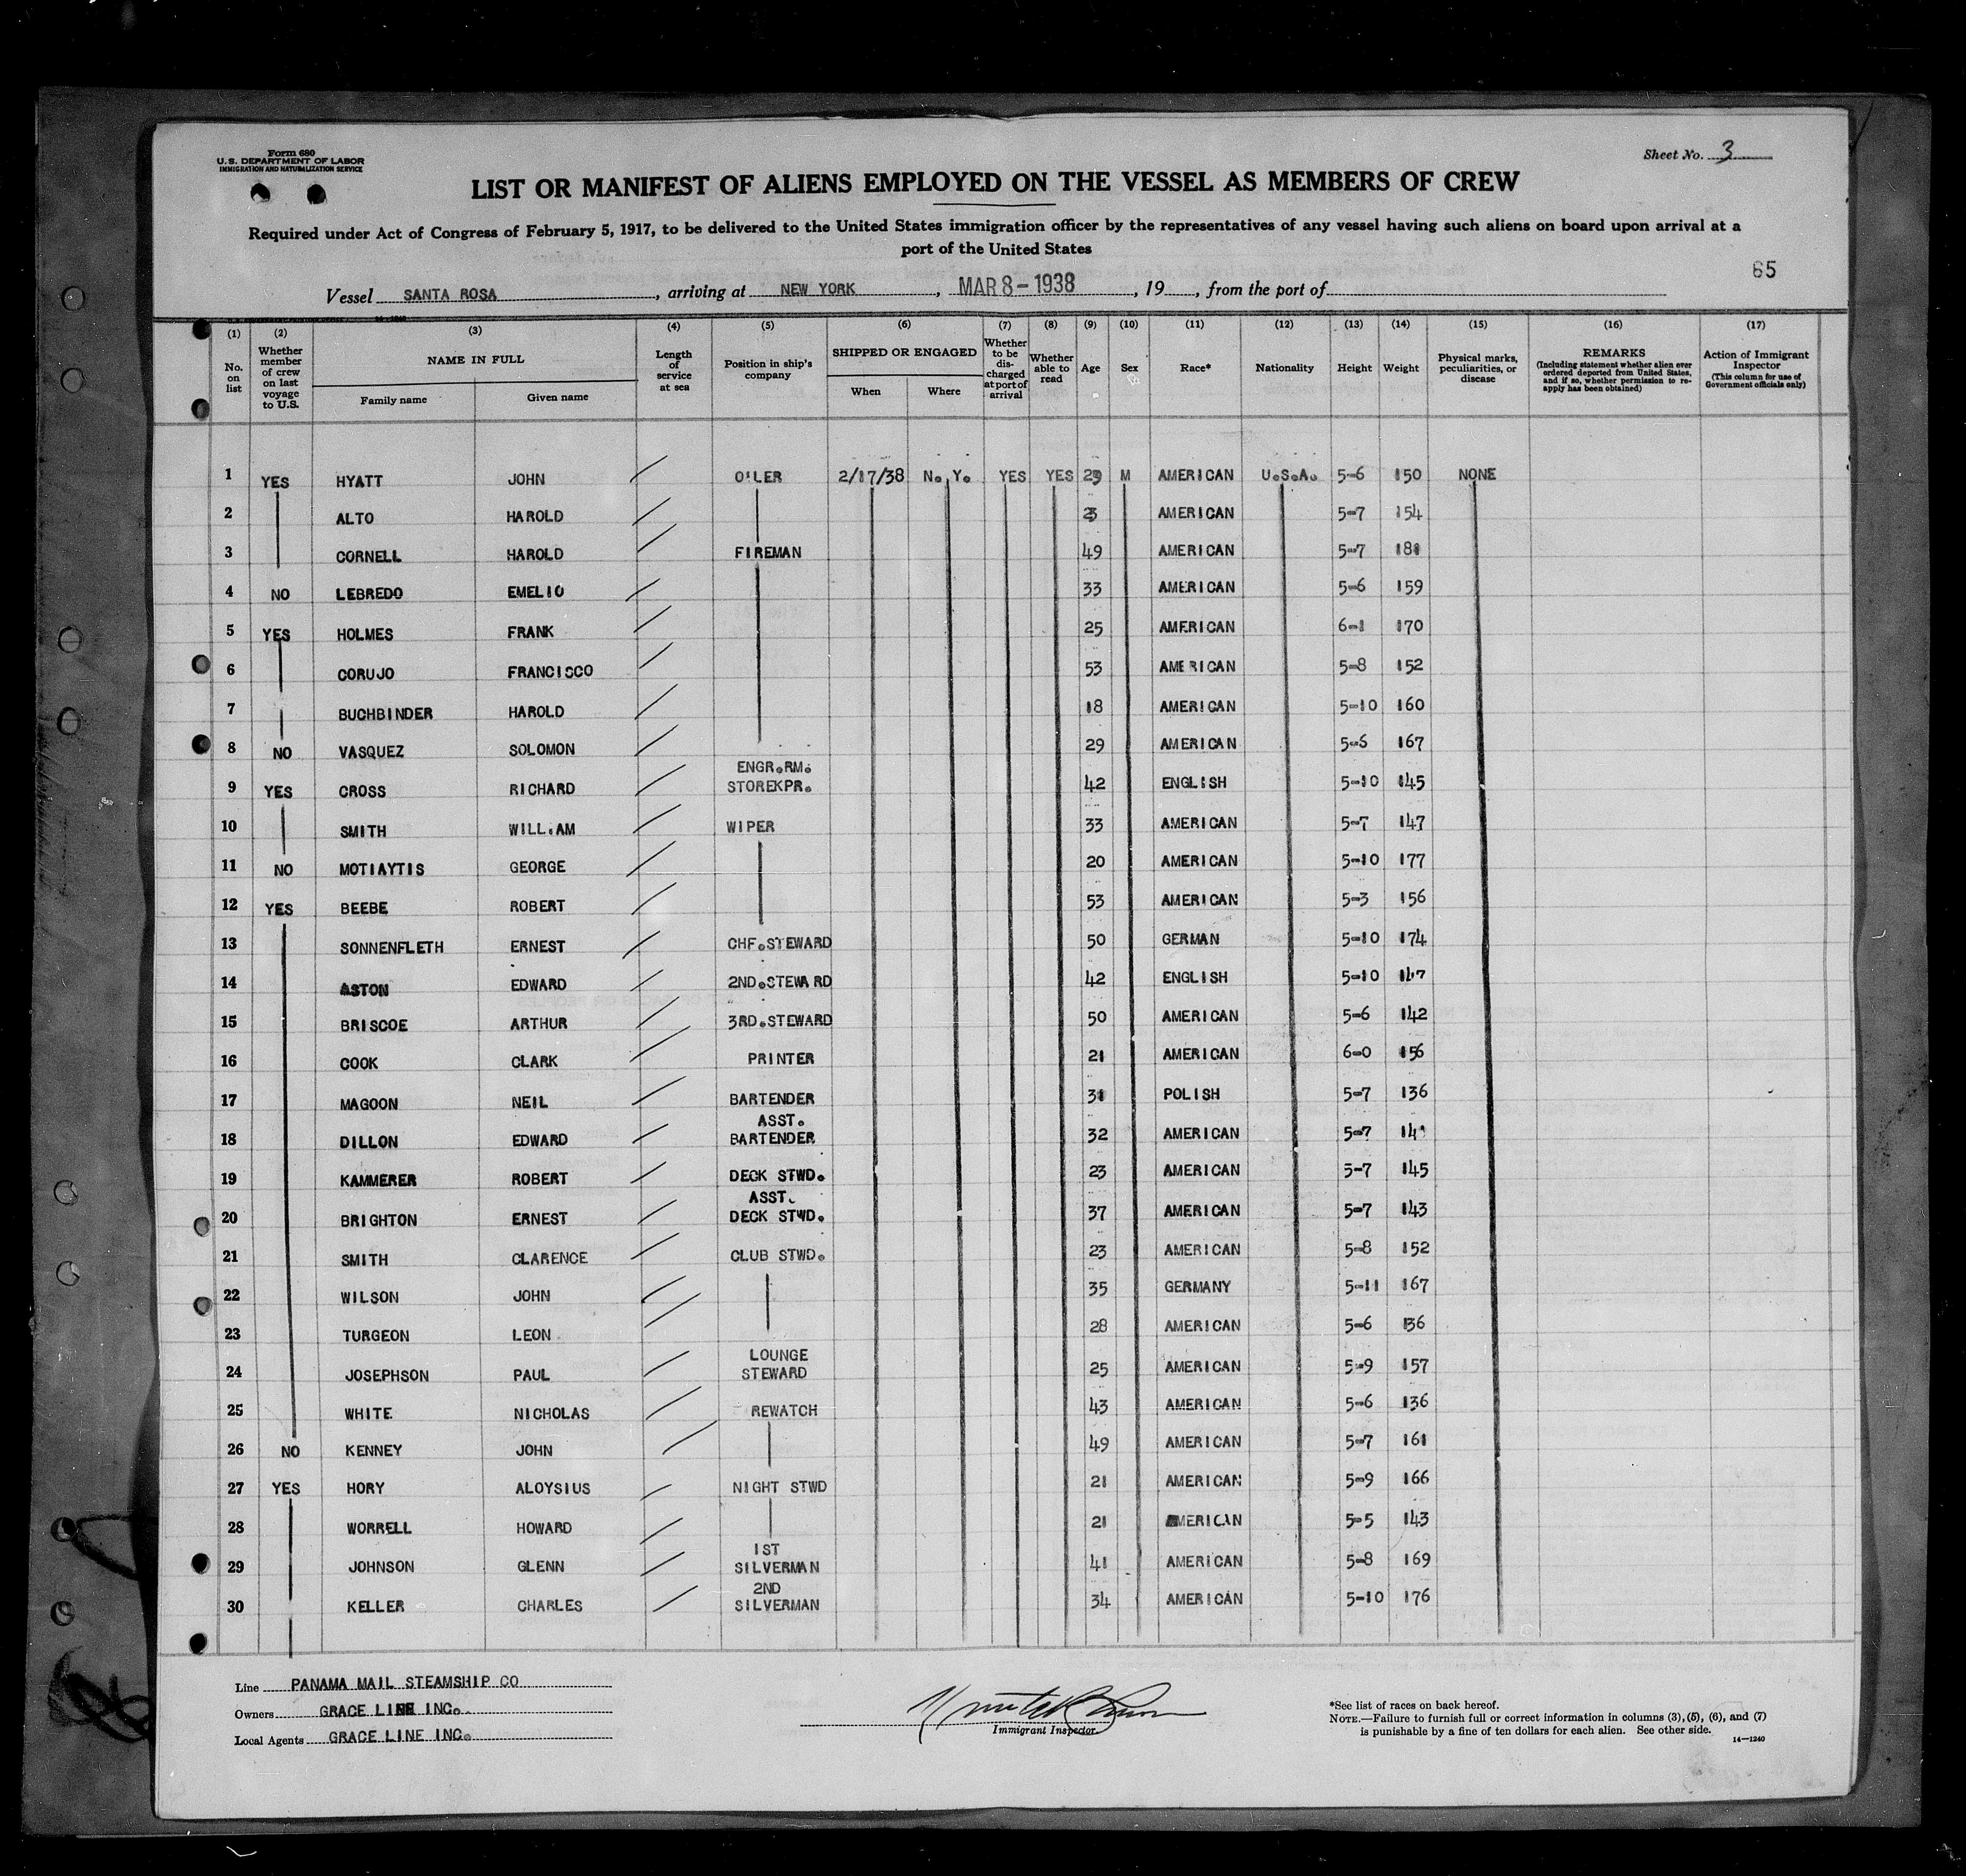 Form 680
U. S. DEPARTMENT OF LABOR
IMMIGRATION AND NATURALIZATION SERVICE
Sheet No. 3
LIST OR MANIFEST OF ALIENS EMPLOYED ON THE VESSEL AS MEMBERS OF CREW
Required under Act of Congress of February 5, 1917, to be delivered to the United States immigration officer by the representatives of any vessel having such aliens on board upon arrival at a
port of the United States
65
Vessel SANTA ROSA, arriving at NEW YORK, MAR 8 - 1938, 19, from the port of
(1) (2) (3) (4) (5) (6) (7) (8) (9) (10) (11) (12) (13) (14) (15) (16) (17)
No. on list
Whether member of crew on last voyage to U.S.
NAME IN FULL
Family name
Given name
Length of service at sea
Position in ship's company
SHIPPED OR ENGAGED
When
Where
Whether to be discharged at port of arrival
Whether able to read
Age
Sex
Race*
Nationality
Height
Weight
Physical marks, peculiarities, or disease
REMARKS
(Including statement whether alien ever ordered deported from United States, and if so, whether permission to reapply has been obtained)
Action of Immigrant Inspector
(This column for use of Government officials only)
1 YES HYATT JOHN O!LER 2/17/38 N. Y. YES YES 29 M AMERICAN U.S.A. 5-6 150 NONE
2 ALTO HAROLD 23 AMERICAN 5-7 154
3 CORNELL HAROLD FIREMAN 49 AMERICAN 5-7 181
4 NO LEBREDO EMELIO 33 AMERICAN 5-6 159
5 YES HOLMES FRANK 25 AMERICAN 6-1 170
6 CORUJO FRANCISCO 53 AMERICAN 5-8 152
7 BUCHBINDER HAROLD 18 AMERICAN 5-10 160
8 NO VASQUEZ SOLOMON 29 AMERICAN 167
ENGR.RM.
9 YES CROSS RICHARD STOREKPR. 42 ENGLISH 5-10 145
10 SMITH WILL.AM WIPER 33 AMERICAN 5-7 147
11 NO MOTIAYTIS GEORGE 20 AMERICAN 5-10 177
12 YES BEEBE ROBERT 53 AMERICAN 5-3 156
13 SONNENFLETH ERNEST CHF.STEWARD 50 GERMAN 5-10 174
14 ASTON EDWARD 2ND.STEWARD 42 ENGLISH 5-10 147
15 BRISCOE ARTHUR 3RD.STEWARD 50 AMERICAN 5-6 142
16 COOK CLARK PRINTER 21 AMERICAN 6-0 156
17 MAGOON NEIL BARTENDER 31 POLISH 5-7 136
ASST.
18 DILLON EDWARD BARTENDER 32 AMERICAN 5-7
19 KAMMERER ROBERT DECK STWD. 23 AMERICAN 5-7 145
ASST.
20 BRIGHTON ERNEST DECK STWD. 37 AMERICAN 5-7 143
21 SMITH CLARENCE CLUB STWD. 23 AMERICAN 5-8 152
22 WILSON JOHN 35 GERMANY 5-11 167
23 TURGEON LEON 28 AMERICAN 5-6 136
LOUNGE
24 JOSEPHSON PAUL STEWARD 25 AMERICAN 5-9 157
25 WHITE NICHOLAS REWATCH 43 AMERICAN 5-6 136
26 NO KENNEY JOHN 49 AMERICAN 5-7 161
27 YES HORY ALOYSIUS NIGHT STWD 21 AMERICAN 5-9 166
28 WORRELL HOWARD 21 AMERICAN 5-5 143
1ST
29 JOHNSON GLENN SILVERMAN 41 AMERICAN 5-8 169
2ND
30 KELLER CHARLES SILVERMAN 34 AMERICAN 5-10 176
Line PANAMA MAIL STEAMSHIP CO
Owners GRACE LINE INC.
Local Agents GRACE LINE INC.
Immigrant Inspector
*See list of races on back hereof.
NOTE.—Failure to furnish full or correct information in columns (3), (5), (6), and (7)
is punishable by a fine of ten dollars for each alien. See other side.
14—1240